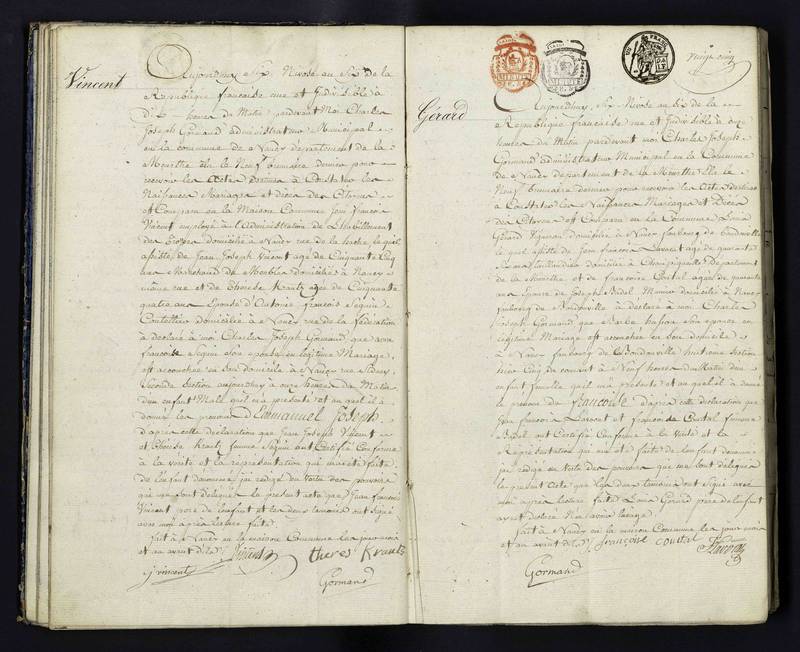 Vincent
Aujourdhuy Six Nivose an Six de la
République française une et Indivisible à
dix heures du Matin pardevant Moi Charles
Joseph Gormand administrateur Municipal
en la commune de Nancy département de la
Meurthe élu le Neuf brumaire dernier pour
recevoir les Actes destinés à Constater les
Naissances Mariages et décès des Citoyens
est Comparu en la Maison Commune Jean françois
Vincent employé à l'Administration de l'habillement
des troupes domicilié à Nancy rue de la hache lequel
assisté de Jean Joseph Vincent agé de Cinquante Cinq
ans Marchand de Meubles domicilié à Nancy
même rue et de thérèse Krantz agée de Cinquante
quatre ans Epouse d'Antoine françois Séguin
Coutellier domicilié à Nancy rue de la fédération
a déclaré à moi Charles Joseph Gormand, que anne
françoise Seguin Son épouse en légitime Mariage,
est accouchée en Son domicile à Nancy rue
Seconde Section aujourdhuy à onze heures du Matin
d'un enfant Mâle quil m'a présenté et auquel il a
donné les prénoms d'Emmanuel Joseph.
d'après cette déclaration que Jean Joseph Vincent
et thérèse Krantz femme Séguin ont Certifié Conforme
à la vérité et la représentation qui m'a été faite
de l'enfant dénommé, j'ai rédigé en vertu des pouvoirs
qui me sont délégués le présent acte que Jean françois
Vincent père de l'enfant et les deux témoins ont Signé
avec moi après lecture faite.
fait à Nancy en la maison Commune les jour mois
et an avant dits
Vincent
theres Krantz
J vincent
Gormand
vingt cinq
Gérard
Aujourdhuy Six Nivose an Six de la
République française une et Indivisible à onze
heures du Matin pardevant moi Charles Joseph
Gormand administrateur Municipal en la Commune
de Nancy département de la Meurthe élu le
Neuf brumaire dernier pour recevoir les Actes destinés
à Constater les Naissances Mariages et Décès
des Citoyens est Comparu en la Commune Louis
Gérard Vigneron domicilié à Nancy faubourg de Boudonville
lequel assisté de Jean françois agé de quarante
ans domicilié à Champigneulle Département
de la Meurthe et de françoise Coutal agée de quarante
ans épouse de Joseph Bidel Manœuvre domicilié à Nancy
faubourg de Boudonville a déclaré à moi Charles
Joseph Gormand que Barbe Son épouse en
légitime Mariage est accouchée en Son domicile
à Nancy faubourg de Boudonville huitième Section
hier Cinq du courant à Neuf heures du Matin d'un
enfant femelle quil m'a présenté et auquel il a donné
le prénom de françoise d'après cette déclaration que
Jean françois et françoise Coutal femme
Bidel ont Certifié Conforme à la Vérité et la
Représentation qui m'a été faite de l'enfant dénommé
j'ai rédigé en Vertu des pouvoirs qui me sont délégués
le présent Acte que les deux témoins ont Signé avec
moi après lecture faite Louis Gérard père de l'enfant
ayant déclaré Ne savoir
fait à Nancy en la maison Commune les jour mois
et an avant dits françoise coutal
Gormand